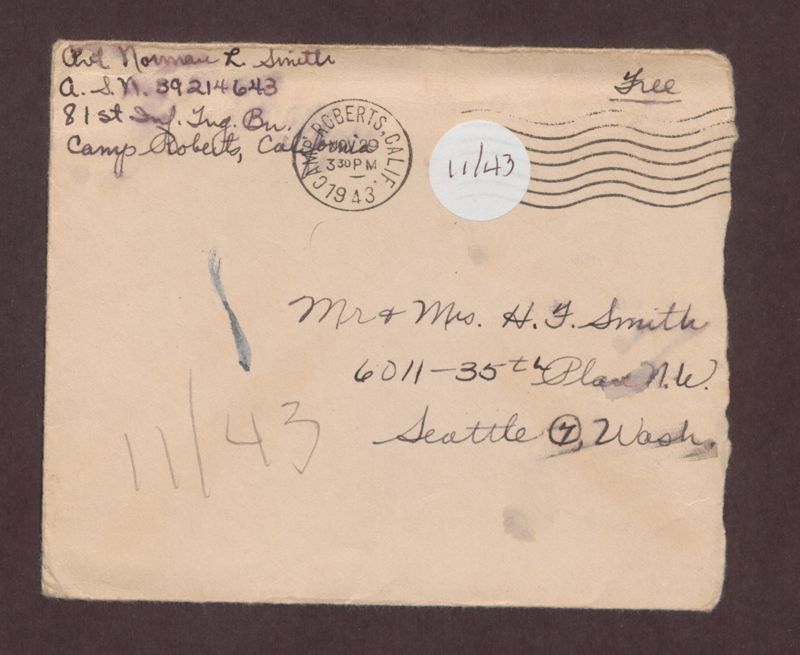 Pvt Norman L. Smith
A. S. N. 39214643
81st Inf. Tng. Bn.
Camp Roberts, California
Free
CAMP ROBERTS, CALIF.
NOV 29
3 30 PM
1943
11/43
Mr & Mrs. H. F. Smith
6011-35th Place N.W.
Seattle 7, Wash.
11/43